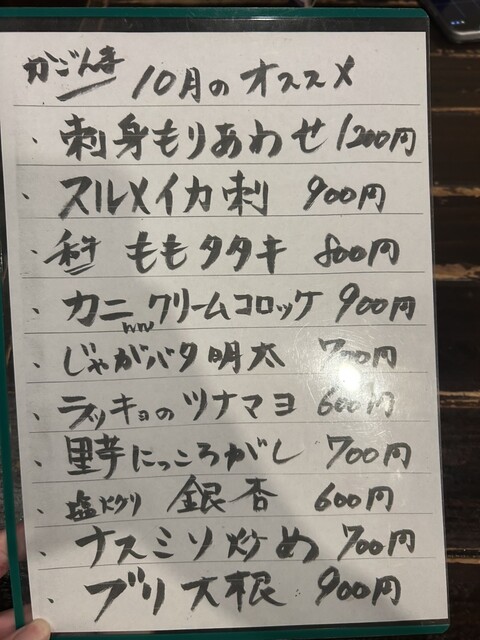 かごんま 10月のオススメ
・刺身もりあわせ 1200円
・スルメイカ刺 900円
・ももタタキ 800円
・カニクリームコロッケ 900円
・じゃがバタ明太 700円
・ラッキョのツナマヨ 600円
・里芋にっころがし 700円
・塩炒り 銀杏 600円
・ナスミソ炒め 700円
・ブリ大根 900円